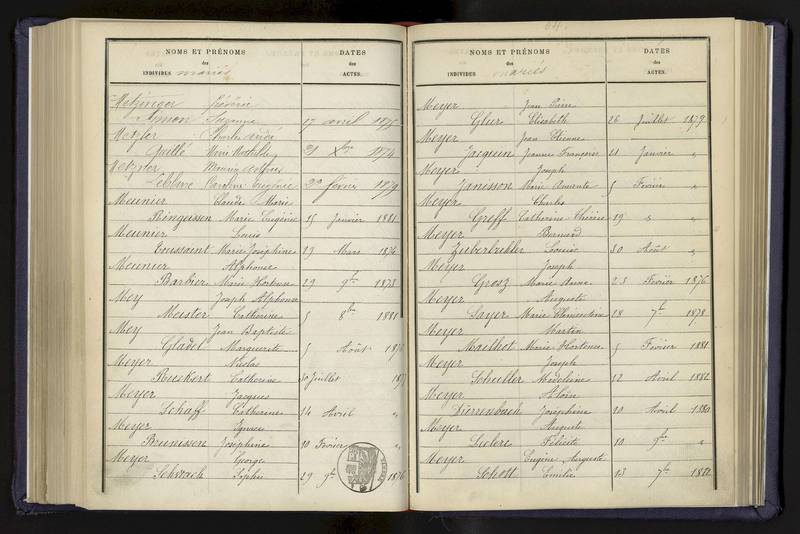 NOMS ET PRÉNOMS
des
INDIVIDUS mariés
DATES
des
ACTES.
Metzinger
Simon Suzanne 17 avril
Metzler Charles
Guillé Marie 21 Xbre 1874
Metzler
Lefebvre Caroline Eugénie 22 février 1879
Meunier Claude Marie
Ringeissen Marie Eugénie 15 Janvier 1881
Meunier Louis
Toussaint Marie Joséphine 19 Mars 1876
Meunier Alphonse
Barbier Marie Hortense 29 9bre 1873
Mey Joseph Alphonse
Meister Catherine 5 8bre 1881
Mey Jean Baptiste
Gladel Marguerite 5 Août
Meyer Nicolas
Ruckert Catherine 30 Juillet
Meyer Jacques
Schaff Catherine 14 Avril "
Meyer Ignace
Brunissen Joséphine 10 Février "
Meyer George
Schwach Sophie 29 9bre 1876
64.
NOMS ET PRÉNOMS
des
INDIVIDUS mariés
DATES
des
ACTES.
Meyer Jean Pierre
Gluer Elisabeth 26 Juillet 1879
Meyer Jean Etienne
Jacquin Jeanne Françoise 21 Janvier "
Meyer Joseph
Janisson Marie 5 Février "
Meyer Charles
Greff Catherine Thérèse 19 " "
Meyer Bernard
Zuberbuhler Louise 30 Août "
Meyer Joseph
Grosz Marie Anne 23 Février 1876
Meyer Auguste
Sayer Marie Clémentine 28 7bre 1878
Meyer Martin
Mathot Marie Hortense 5 Février 1881
Meyer Joseph
Schuller Madeleine 12 Avril 1882
Meyer Aloïse
Dierrenbach Joséphine 10 Avril 1880
Meyer Auguste
Leclerc Félicité 10 9bre "
Meyer Eugène Auguste
Schott Emilie 23 7bre 1882